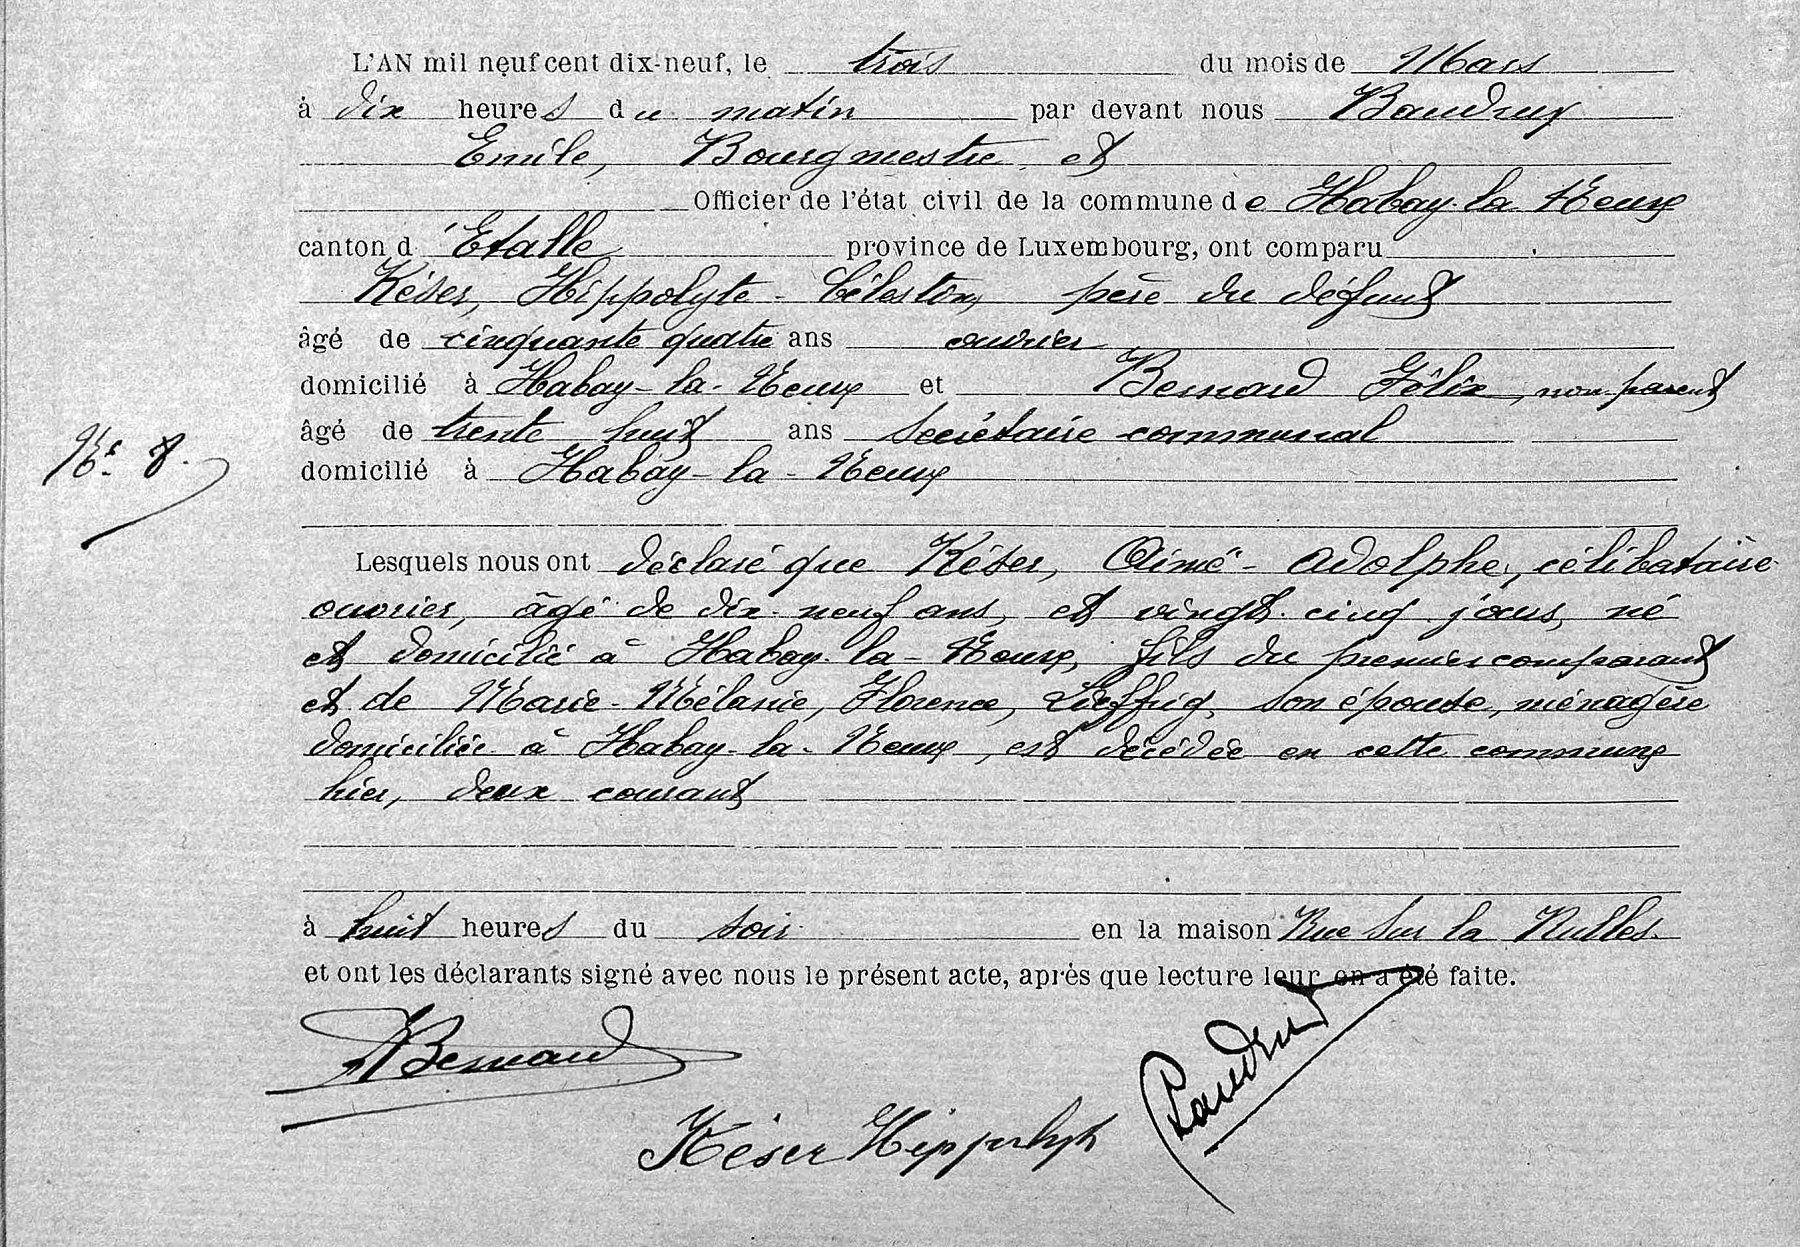 L'AN mil neuf cent dix-neuf, le trois du mois de Mars
à dix heures du matin par devant nous Baudrux
Emile, Bourgmestre et
Officier de l'état civil de la commune de Habay-la-Neuve
canton d'Etalle province de Luxembourg, ont comparu
Késer, Hippolyte-Célestin, père du défunt
âgé de cinquante quatre ans ouvrier
domicilié à Habay-la-Neuve et Bernard Félix, non parent
âgé de trente huit ans secrétaire communal
N° 8. domicilié à Habay-la-Neuve
Lesquels nous ont déclaré que Késer, Aimé-Adolphe, célibataire
ouvrier, âgé de dix-neuf ans, et vingt-cinq jours, né
et domicilié à Habay-la-Neuve, fils du premier comparant
et de Marie-Mélanie, Florence, Lieffrig, son épouse, ménagère
domiciliée à Habay-la-Neuve, est décédée en cette commune
hier, deux courant
à huit heures du soir en la maison Rue Sur la Rulles.
et ont les déclarants signé avec nous le présent acte, après que lecture leur en a été faite.
FBernard
Késer Hippolyte